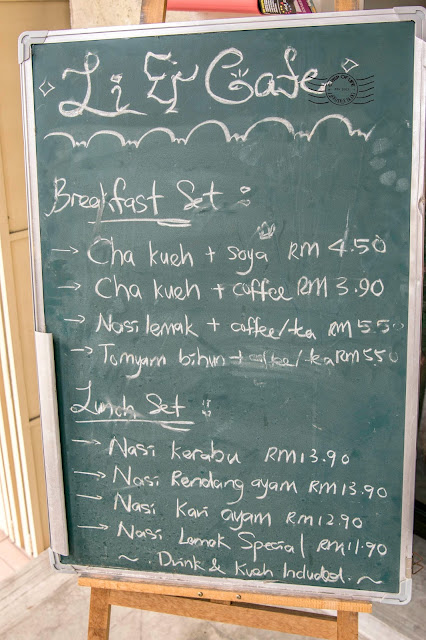 Li Er Cafe
Breakfast Set :
→ Cha kueh + soya RM 4.50
→ Cha kueh + coffee RM 3.90
→ Nasi lemak + coffee/tea RM 5.50
→ Tomyam bihun + coffee/tea RM 5.50
Lunch Set :
→ Nasi kerabu RM 13.90
→ Nasi Rendang ayam RM 13.90
→ Nasi Kari ayam RM 12.90
→ Nasi Lemak Special RM 11.90
~ Drink & Kueh Included. ~